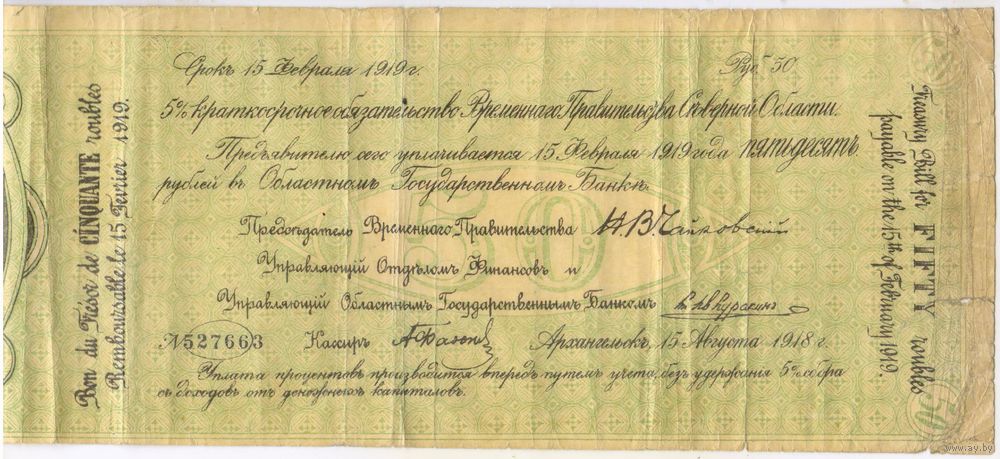 Bon du Trésor de CINQUANTE roubles
Remboursable le 15 Fevrier 1919.
Срокъ 15 Февраля 1919 г.
Руб. 50
5% краткосрочное обязательство Временнаго Правительства Сѣверной Области.
Предъявителю сего уплачивается 15 Февраля 1919 года пятьдесятъ
рублей въ Областномъ Государственномъ Банкѣ.
50
Предсѣдатель Временнаго Правительства Н.В. Чайковскій
Управляющій Отдѣломъ Финансовъ и
Управляющій Областнымъ Государственнымъ Банкомъ
№ 527663 Кассиръ Архангельскъ, 15 Августа 1918 г.
Уплата процентовъ производится впередъ путемъ учета, безъ удержанія 5% сбора
съ доходовъ отъ денежныхъ капиталовъ.
Treasury Bill for FIFTY roubles
payable on the 15th of February 1919.
50
www.ay.by